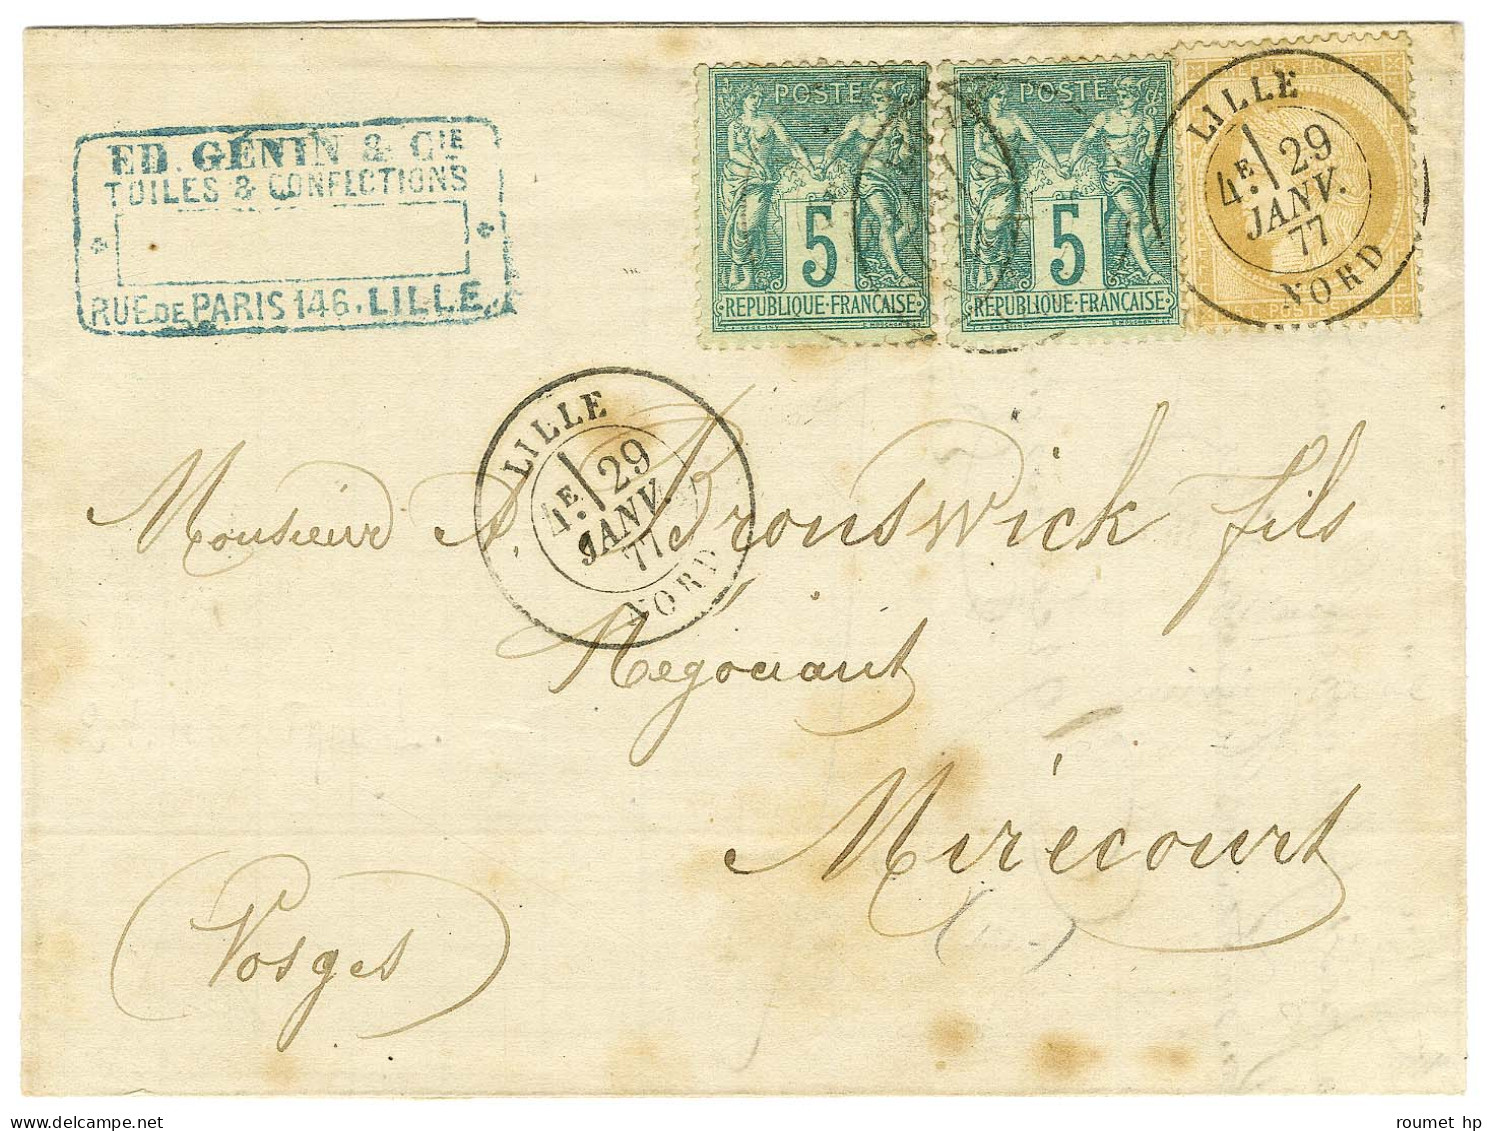 ED. GÉNIN & CIE
TOILES & CONFECTIONS
RUE DE PARIS 146. LILLE
POSTE
5
REPUBLIQUE-FRANÇAISE
POSTE
5
REPUBLIQUE-FRANÇAISE
LILLE
4E 29
JANV.
77
NORD
LILLE
4E 29
JANV.
77
NORD
Monsieur A. Bronswick fils
Négociant
Mirecourt
(Vosges)
roumet hp